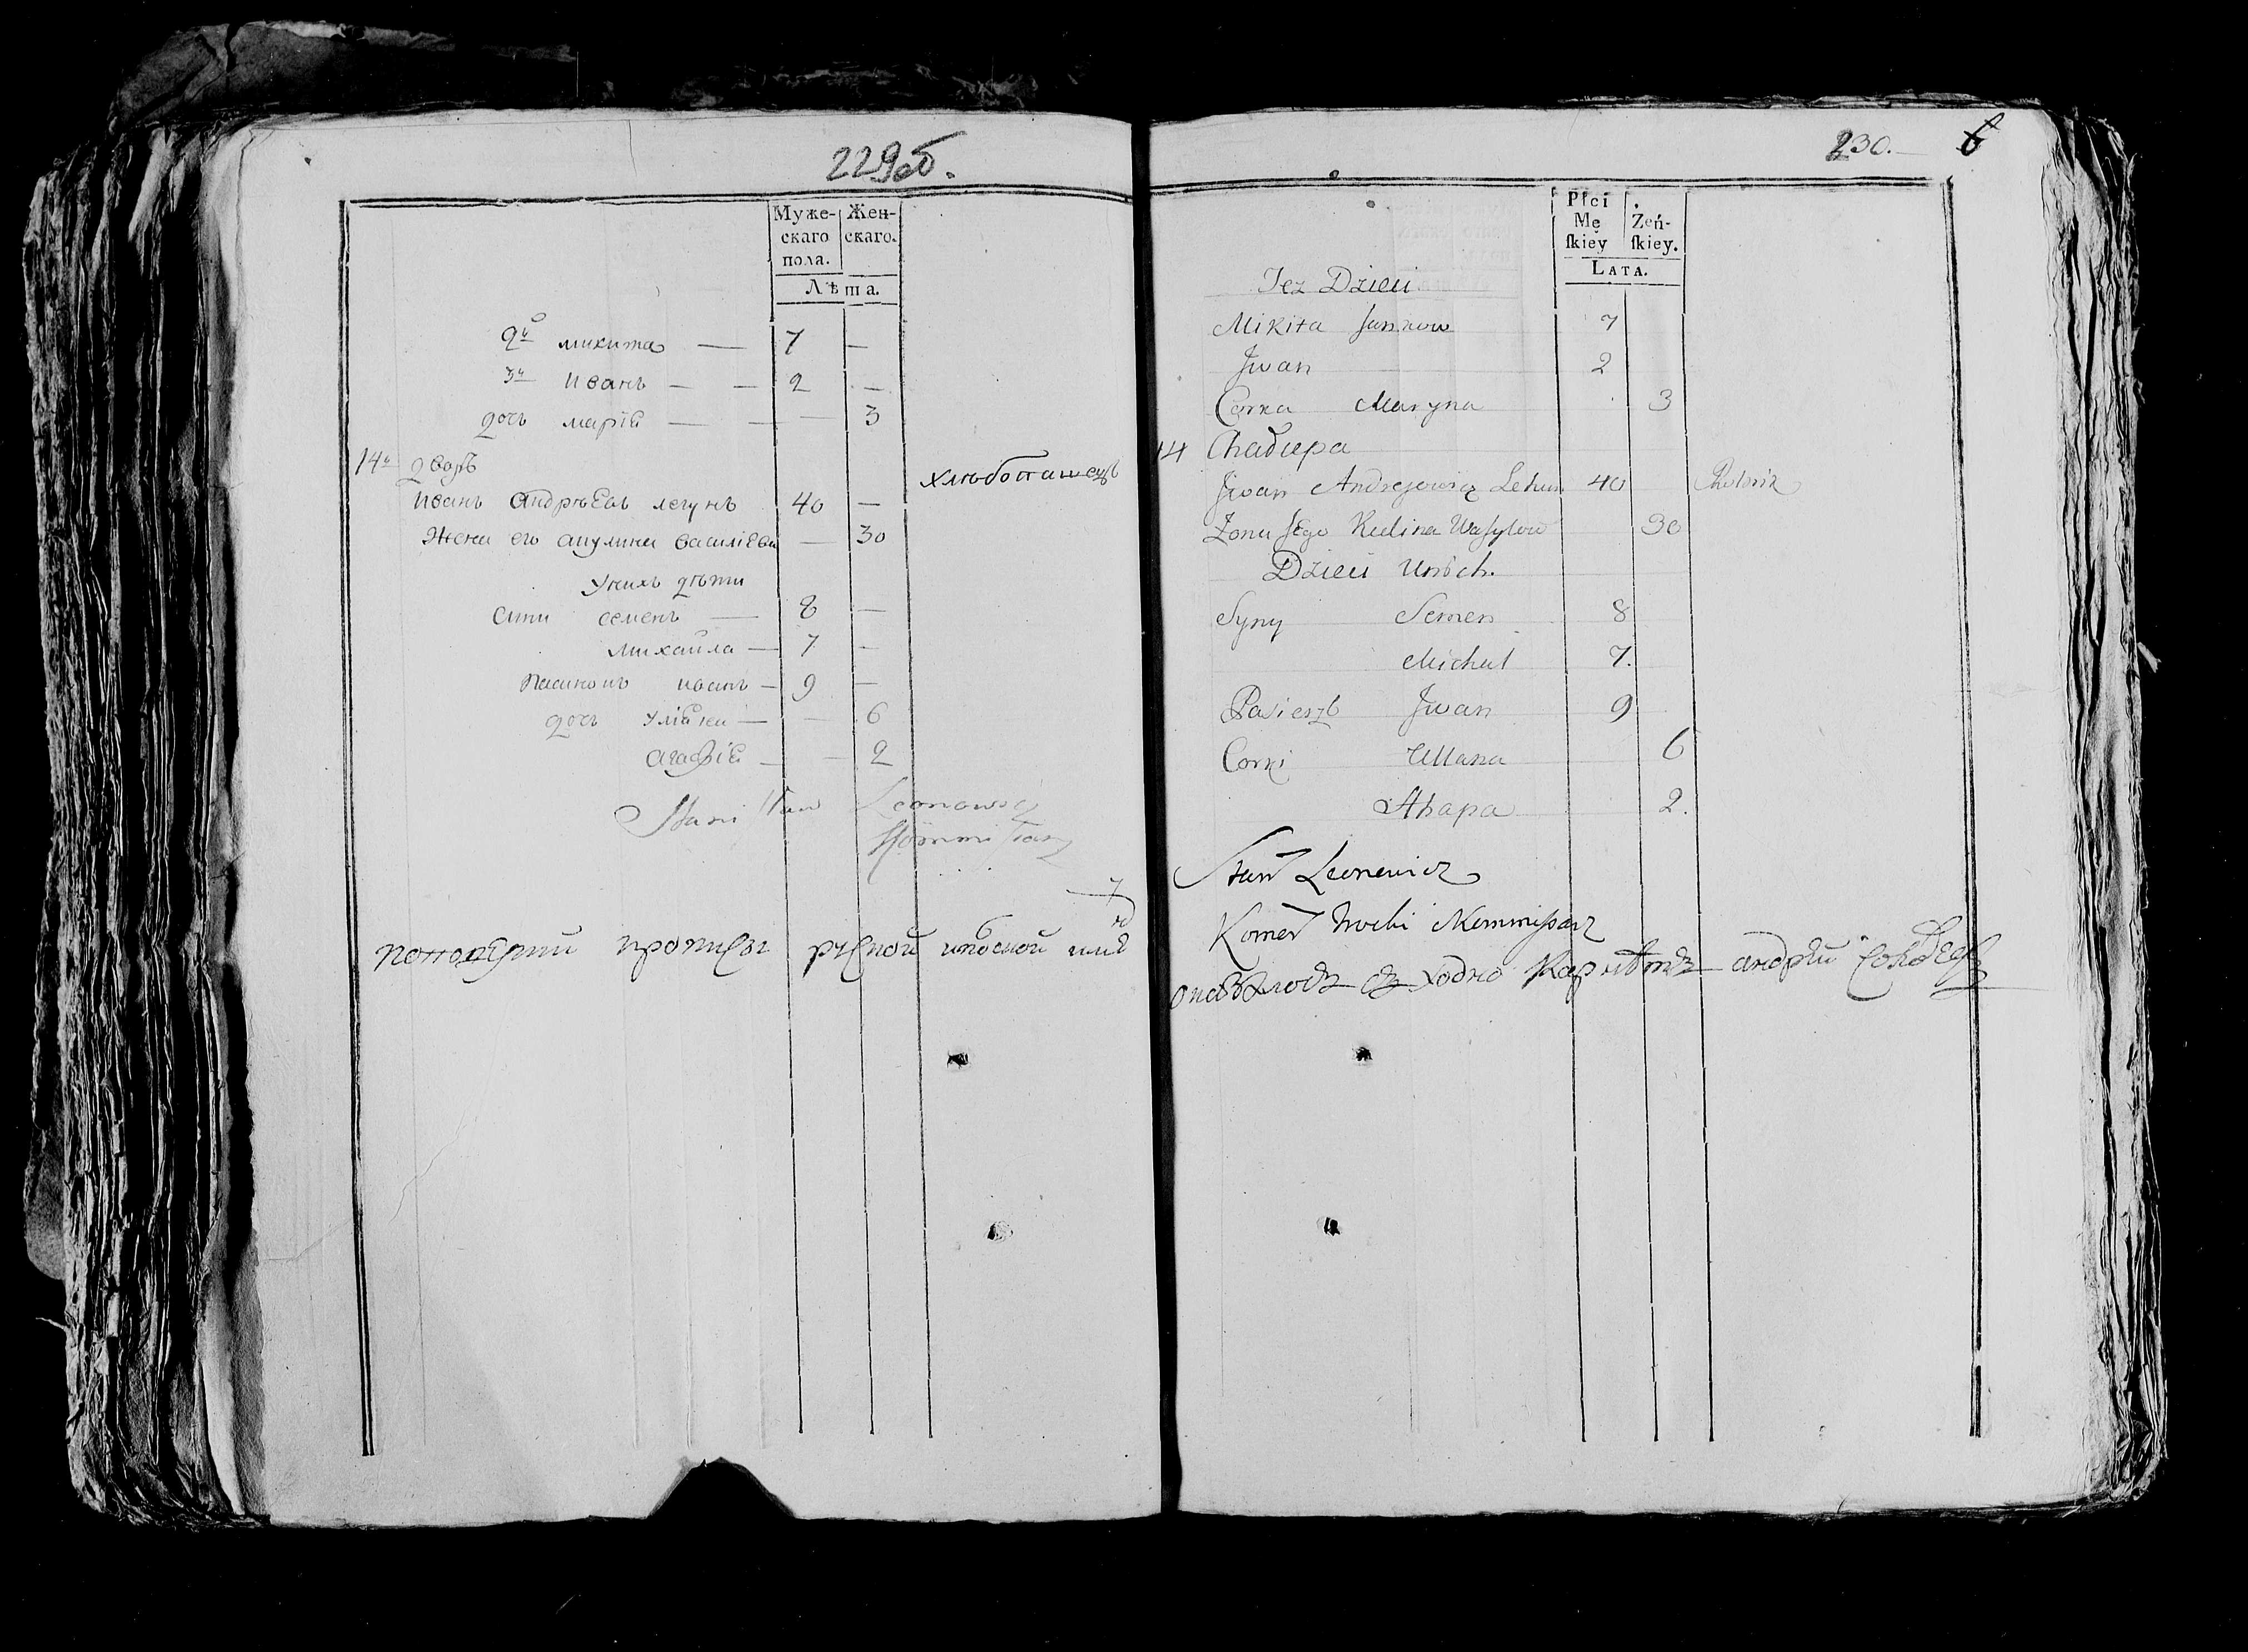 229об.
Муже-скаго пола. Жен-скаго.
Лѣта.
2й микита — 7 —
3й иванъ — — 2 —
дочъ марія — — — 3
14й дворъ
хлѣбопашецъ
иванъ андрѣевъ легунъ 40 —
жена его акулина василіева — 30
У нихъ дѣти
сини семенъ — 8 —
михайла — 7 —
пасинокъ иванъ — 9 —
дочъ уліяна — — 6
агафія — — 2
Stanisław Leonowicz
Kommissarz
230. — 6
Płci Mę ſkiey Żeń-ſkiey.
LATA.
Tez Dzieci
Mikita Jankow 7
Jwan 2
Corka Maryna 3
14 Chałupa
Jwan Andrejowicz Lehun 40 Rolnik
Zona Jego Kulina Wasylow 30
Dzieci Unich.
Syny Semen 8
Michał 7.
Pasierzb Jwan 9
Corki Ullana 6
Ahapa 2.
Stan Leonowicz
Kommissarz
андрѣй